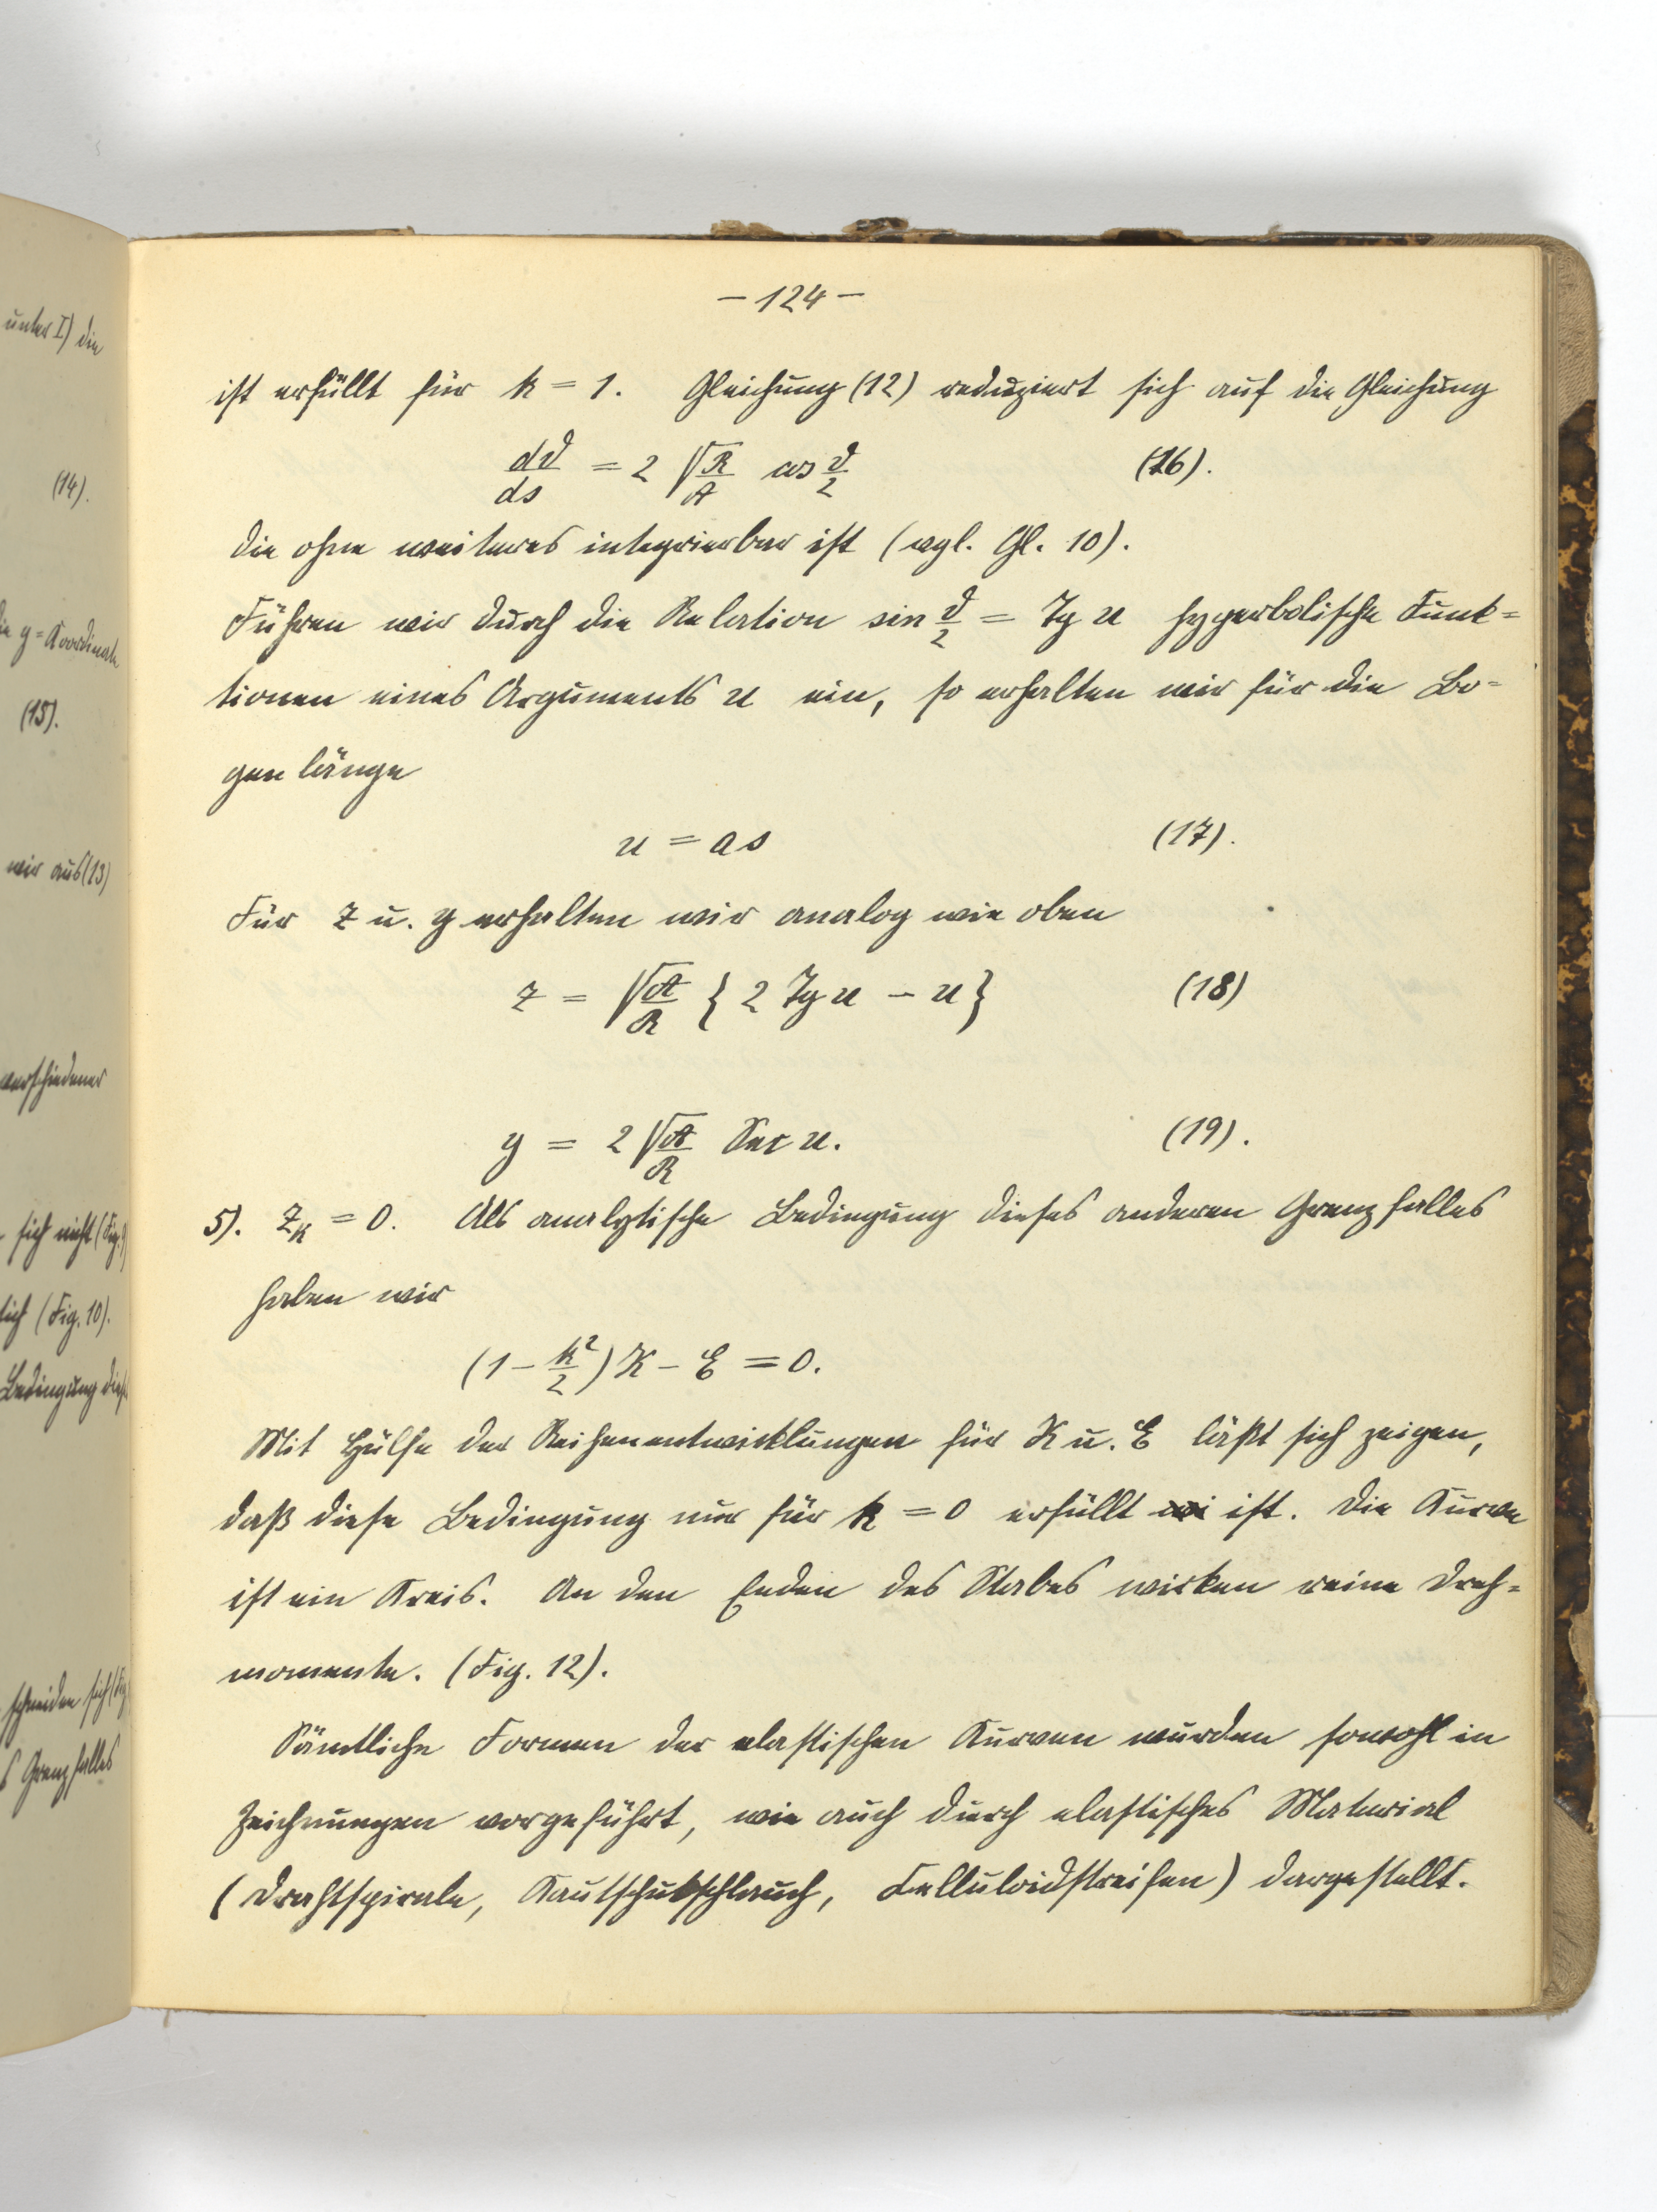 unter I) die
(14).
die y=Koordinate
(15).
wir aus (13)
verschiedener
sich nicht (Fig. 9)
lich (Fig. 10).
Bedingung dieses
schneiden sich (Fig.
s Grenzfalles
— 124 —
ist erfüllt für k = 1. Gleichung (12) reduziert sich auf die Gleichung
dϑ/ds = 2 √R/A cos ϑ/2 (16).
die ohne weiteres integrierbar ist (vgl. Gl. 10).
Führen wir durch die Relation sin ϑ/2 = Tg u hyperbolische Funk=
tionen eines Arguments u ein, so erhalten wir für die Bo=
genlänge
u = as (17).
Für z u. y erhalten wir analog wie oben
z = √A/R { 2 Tg u – u } (18)
y = 2 √A/R Sec u. (19).
5). z_K = 0. Als analytische Bedingung dieses anderen Grenzfalles
haben wir
(1 – k²/2) K – E = 0.
Mit Hülfe der Reihenentwicklungen für K u. E läßt sich zeigen,
daß diese Bedingung nur für k = 0 erfüllt ist. Die Kurve
ist ein Kreis. An den Enden des Stabes wirken reine Dreh=
momente. (Fig. 12).
Sämtliche Formen der elastischen Kurven wurden sowohl in
Zeichnungen vorgeführt, wie auch durch elastisches Material
(Drahtspirale, Kautschukschlauch, Celluloidstreifen) dargestellt.